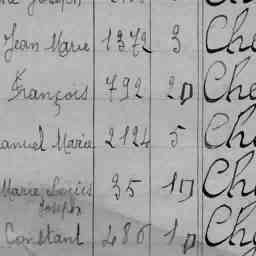 Joseph
Jean Marie 1372 3 Che
François 792 2 Che
anuel Marie 2124 5 Che
Marie Louis 35 1 Che
Joseph
Constant 486 1 Che